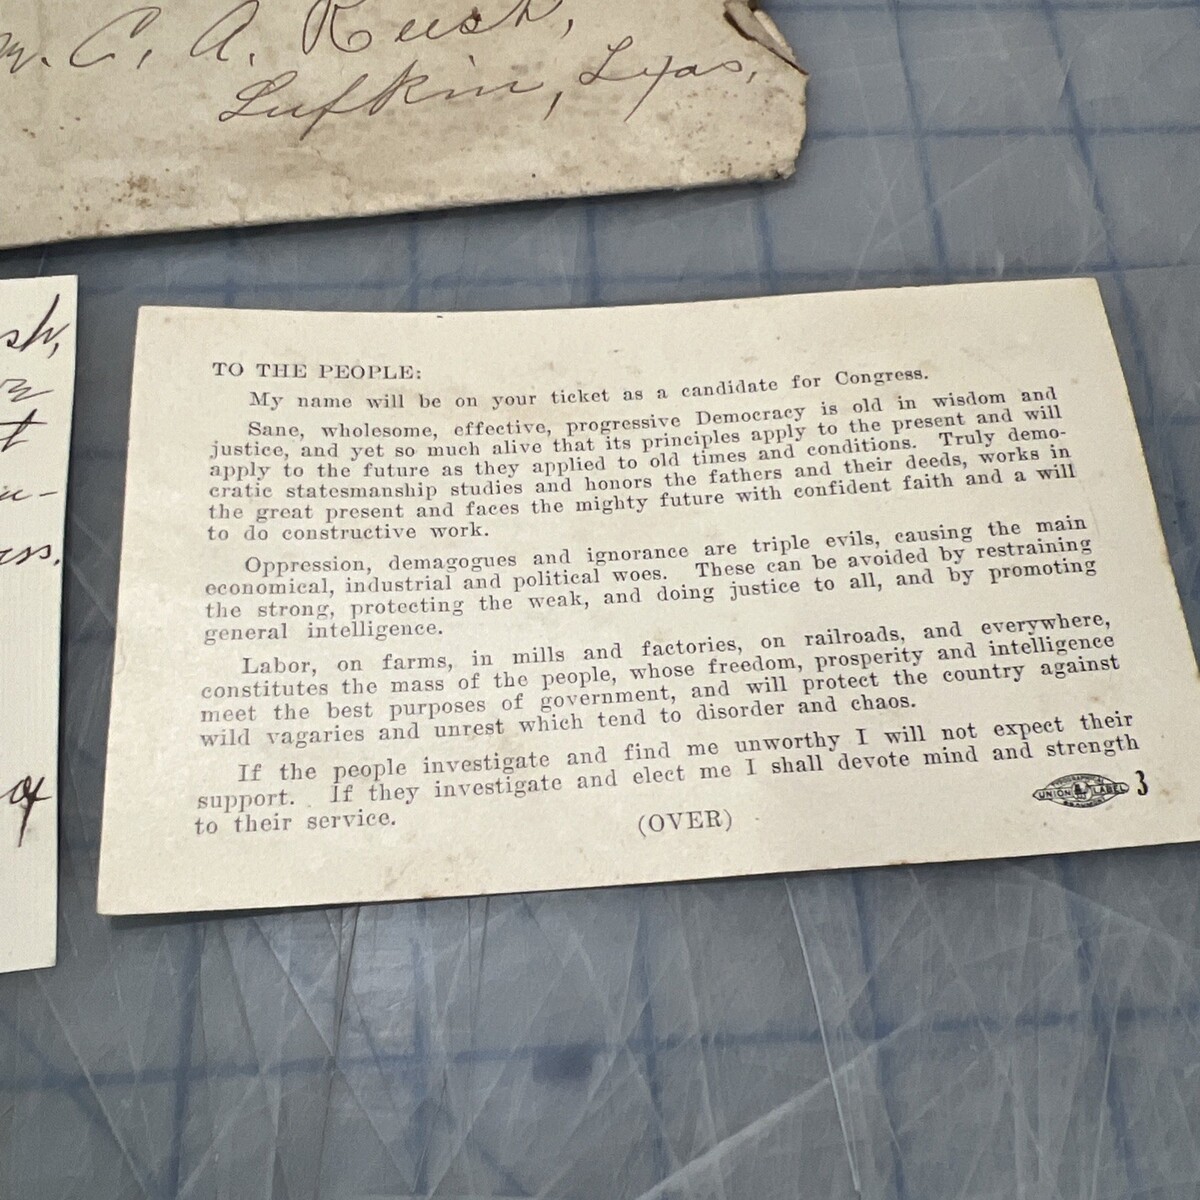 C. A. Rush,
Lufkin, Texas,
TO THE PEOPLE:
My name will be on your ticket as a candidate for Congress.
Sane, wholesome, effective, progressive Democracy is old in wisdom and
justice, and yet so much alive that its principles apply to the present and will
apply to the future as they applied to old times and conditions. Truly demo-
cratic statesmanship studies and honors the fathers and their deeds, works in
the great present and faces the mighty future with confident faith and a will
to do constructive work.
Oppression, demagogues and ignorance are triple evils, causing the main
economical, industrial and political woes. These can be avoided by restraining
the strong, protecting the weak, and doing justice to all, and by promoting
general intelligence.
Labor, on farms, in mills and factories, on railroads, and everywhere,
constitutes the mass of the people, whose freedom, prosperity and intelligence
meet the best purposes of government, and will protect the country against
wild vagaries and unrest which tend to disorder and chaos.
If the people investigate and find me unworthy I will not expect their
support. If they investigate and elect me I shall devote mind and strength
to their service.
(OVER)
UNION LABEL 3